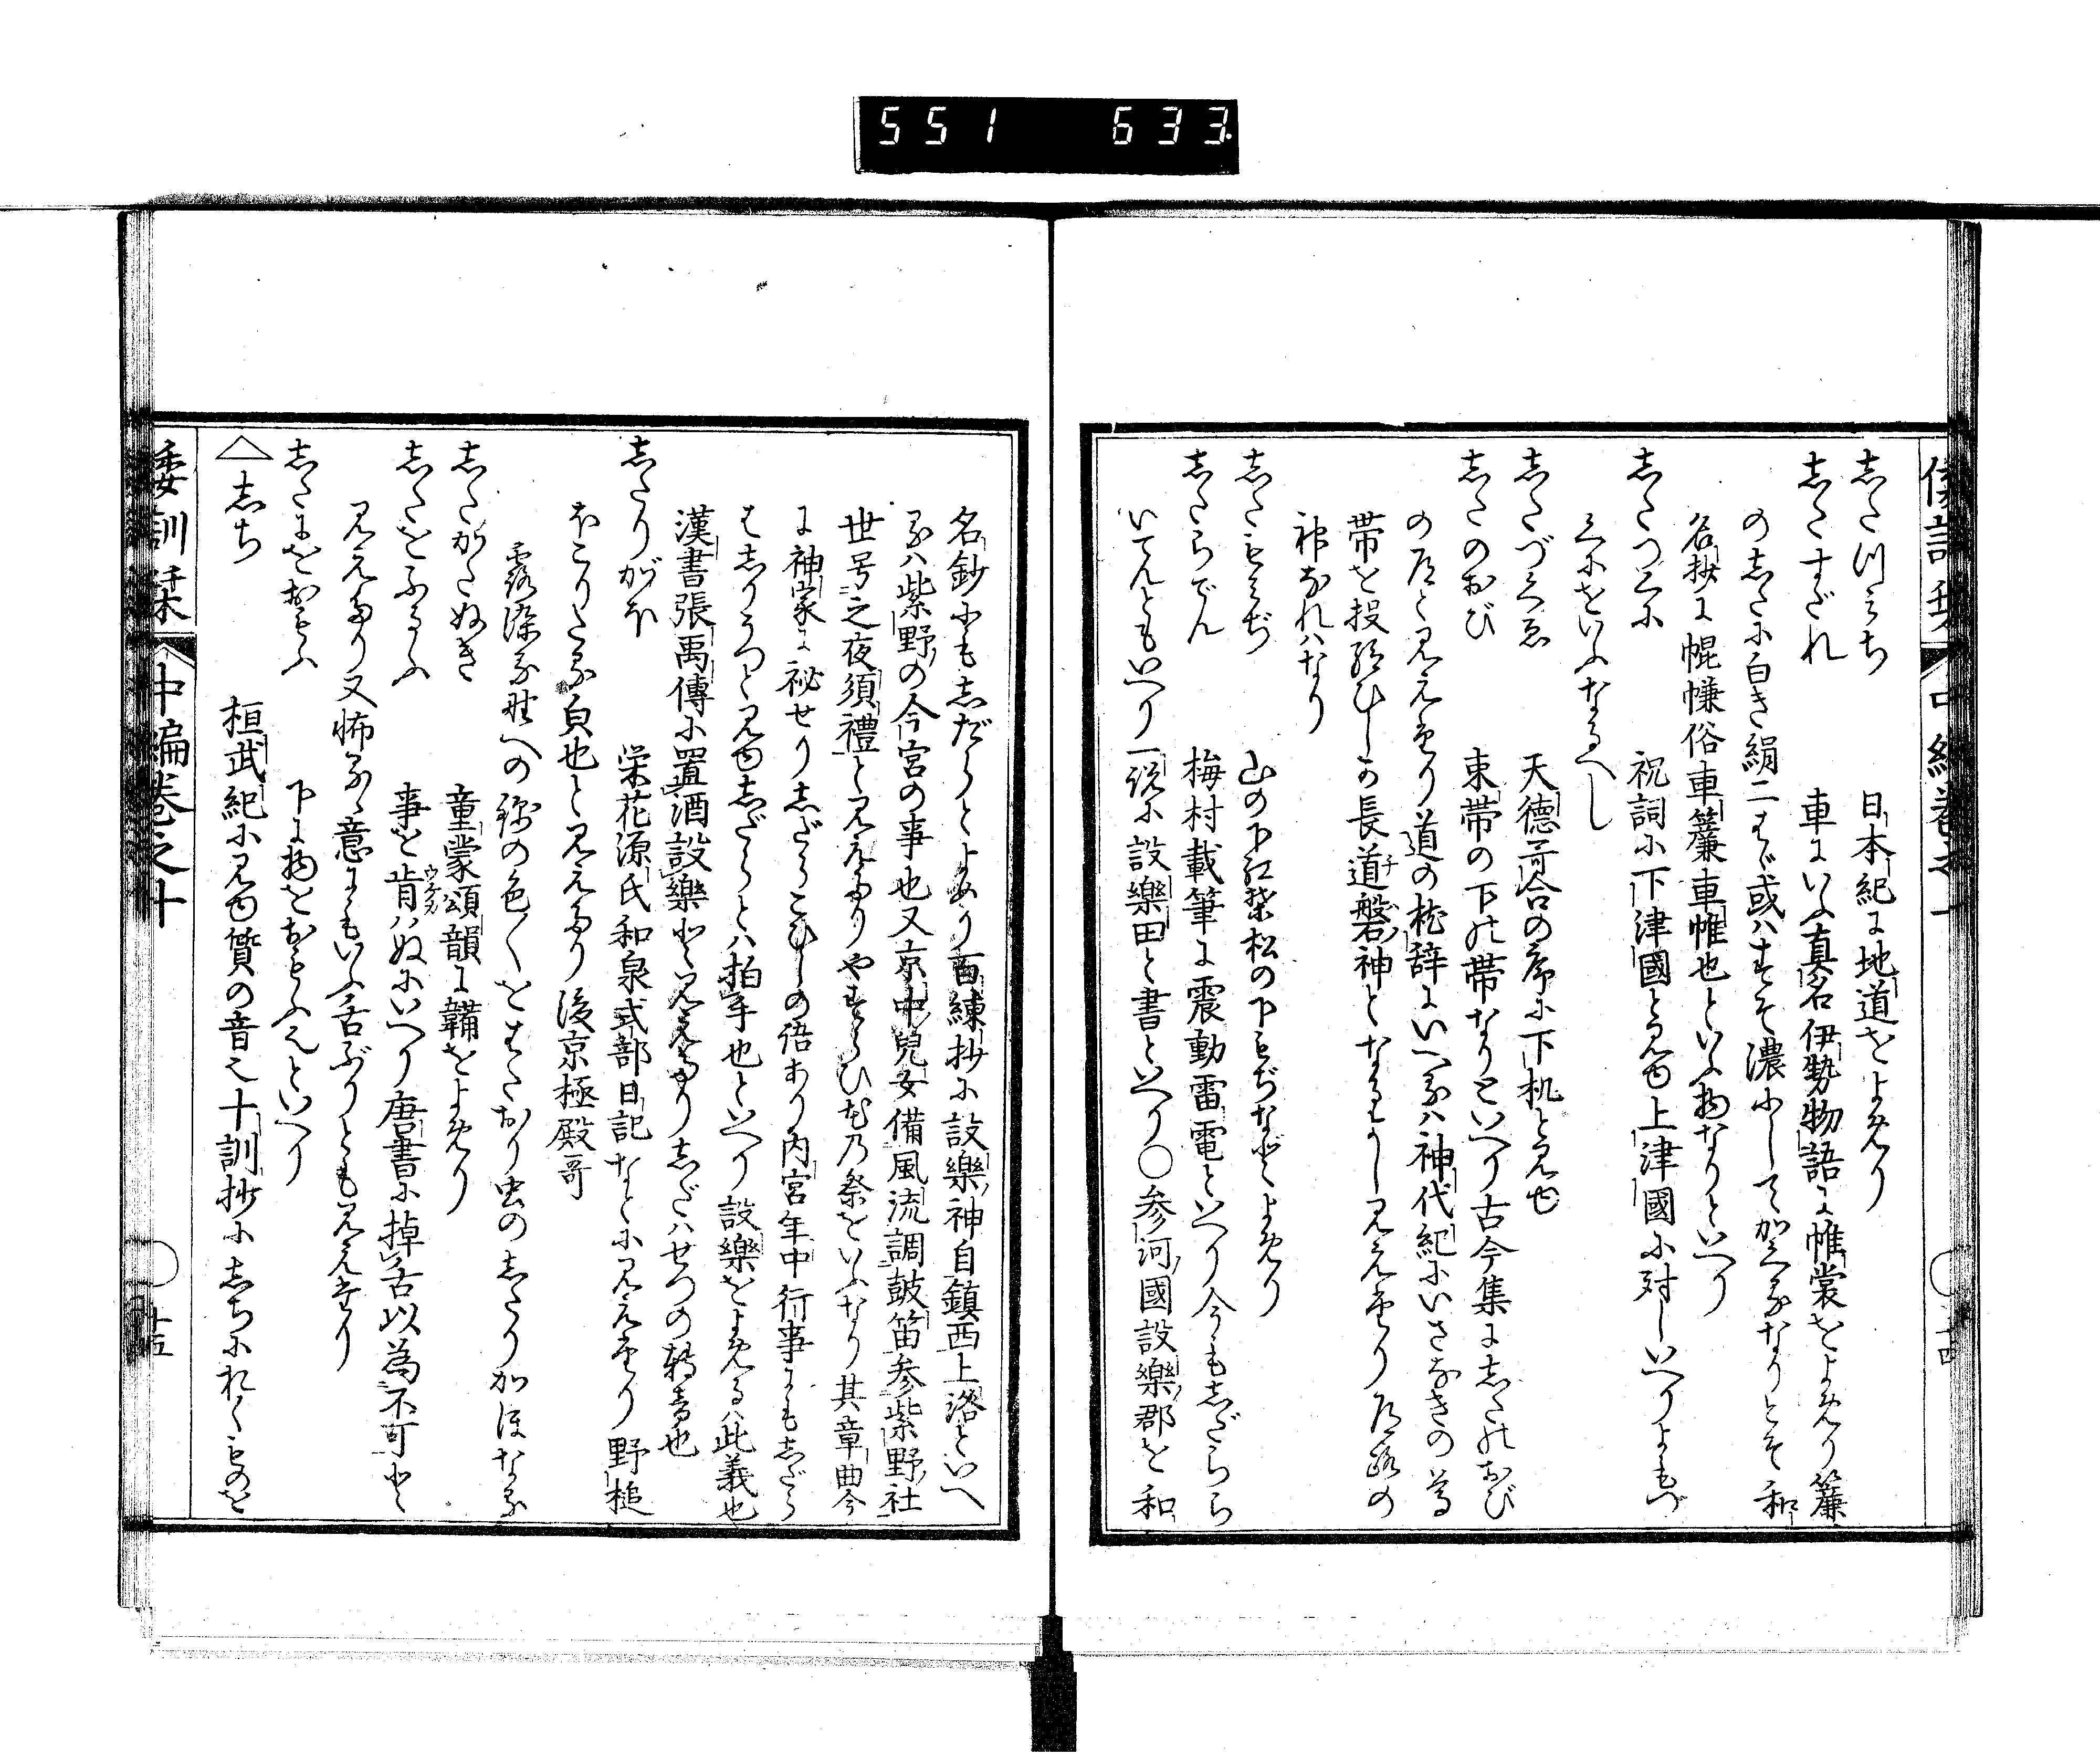 551 633
したつみち 日本紀に地道をよめり
したすだれ 車にいふ真名伊勢物語に帷裳をよめり簾
のしたに白き絹二はゞ或ハすそ濃にしてかくるなりとそ和
名抄に幌㡘俗車簾車帷也といふ物なりといへり
したつくに 祝詞に下津國と見ゆ上津國に対しいへりよもづ
くにをいふなるへし
したづくゑ 天德哥合の序に下机と見ゆ
したのおび 束帯の下の帯なりといへり古今集にしたのおび
の道と見えたり道の枕辞にいへるハ神代紀にいさなきの尊
帯を投給ひしか長道磐神となるよし見えたり道路の
神なれハなり
したもみぢ 山の下紅葉松の下もぢなどよめり
したらでん 梅村載筆に震動雷電といへり今もしだらら
いてんともいへり一説に設樂田と書といへり〇参河國設樂郡を和
名鈔にもしだらとよめり百練抄に設樂神自鎮西上洛といへ
るハ紫野の今宮の事也又京中兒女備風流調鼓笛参紫野社
世号之夜須禮と見えたりやすらひ花乃祭をいふなり其章曲今
に神家に祕せりしだらこひしの語あり内宮年中行事にもしだら
はしりうつと見ゆしだらとハ拍手也といへり設樂をよめるハ此義也
漢書張禹傳に置酒設樂など見えたりしだハせつの轉音也
したりがほ 栄花源氏和泉式部日記なとに見えたり野槌
ほこりたる皃也と見えたり後京極殿哥
露深る野への錦の色〱をはたおり虫のしたりかほなる
したがたぬき 童蒙頌韻に鞴をよめり
したをふるふ 事を肯ハぬにいへり唐書に掉舌以為不可など
見えたり又怖るゝ意にもいふ舌ぶりとも見えたり
したにをおもふ 下に物をおもふ也といへり
△しち 桓武紀に見ゆ質の音也十訓抄にしちにおくものを
倭訓栞 中編巻之十 十五